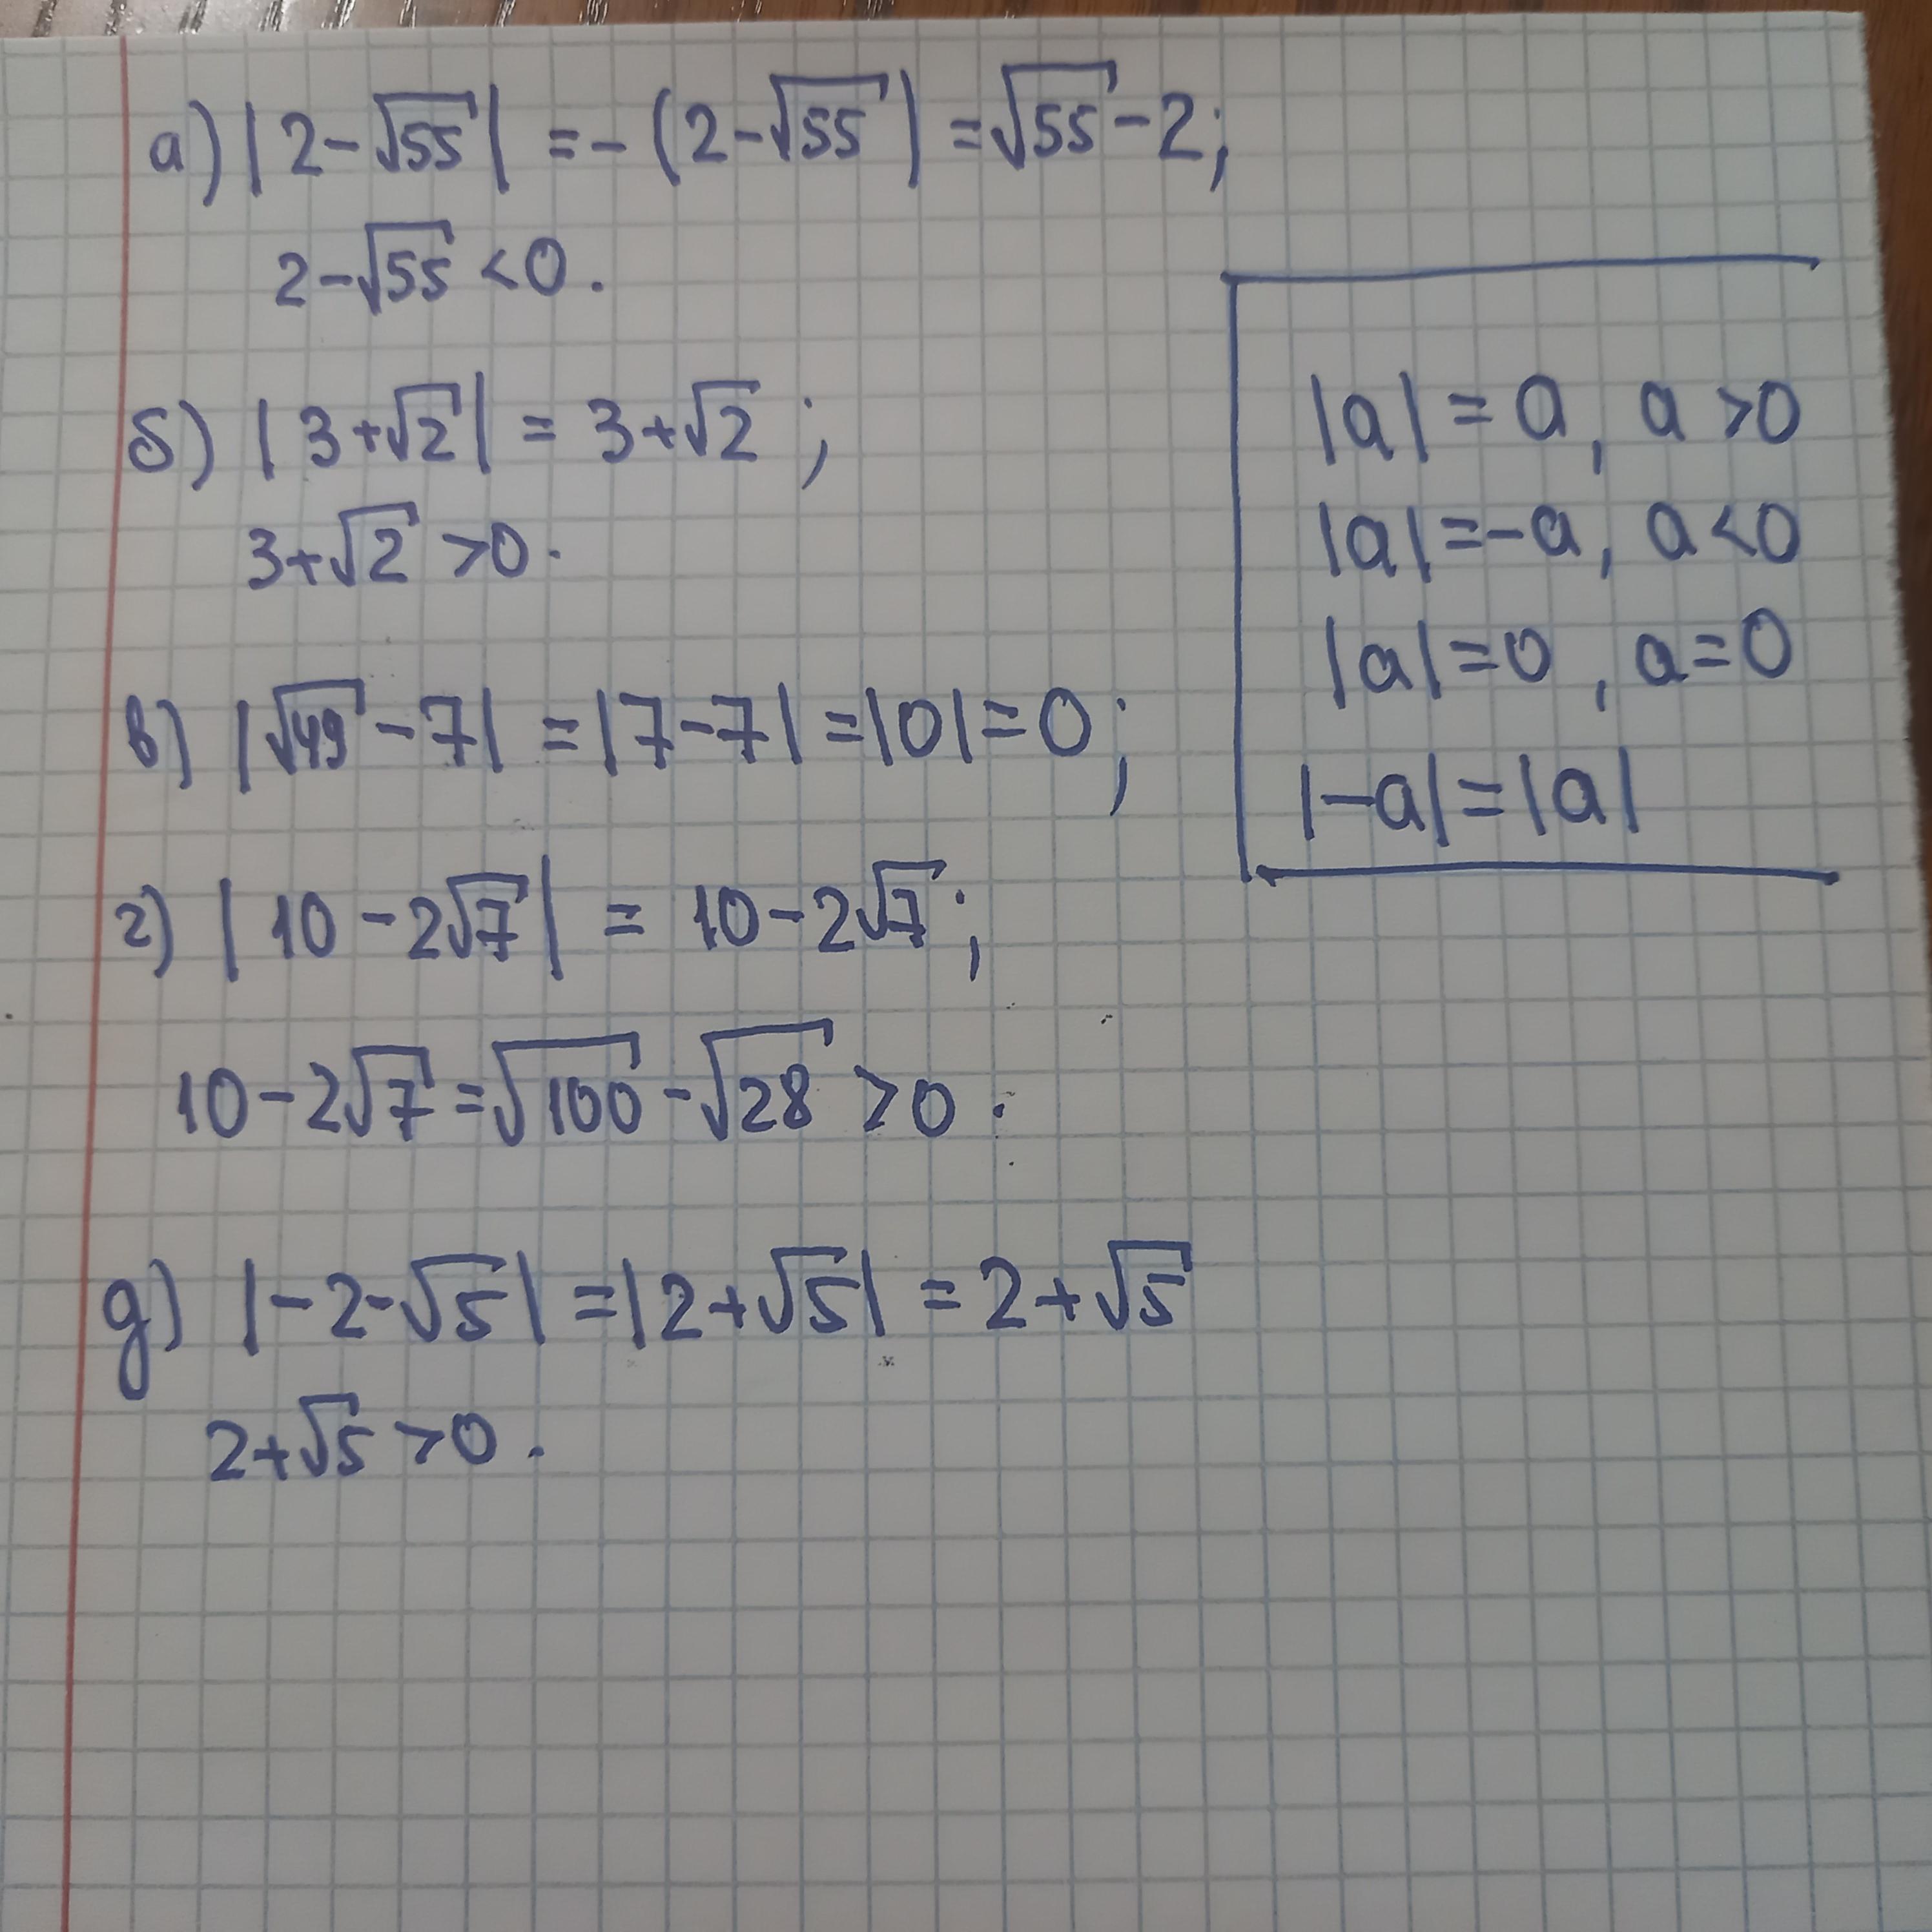 а) |2-√55| = -(2-√55) = √55-2;
2-√55 <0.
б) |3+√2| = 3+√2;
3+√2 >0.
в) |√49-7| = |7-7| = |0| = 0;
г) |10-2√7| = 10-2√7;
10-2√7 = √100-√28 >0.
д) |-2-√5| = |2+√5| = 2+√5
2+√5 >0.
|a| = a, a >0
|a| = -a, a <0
|a| = 0, a = 0
|-a| = |a|